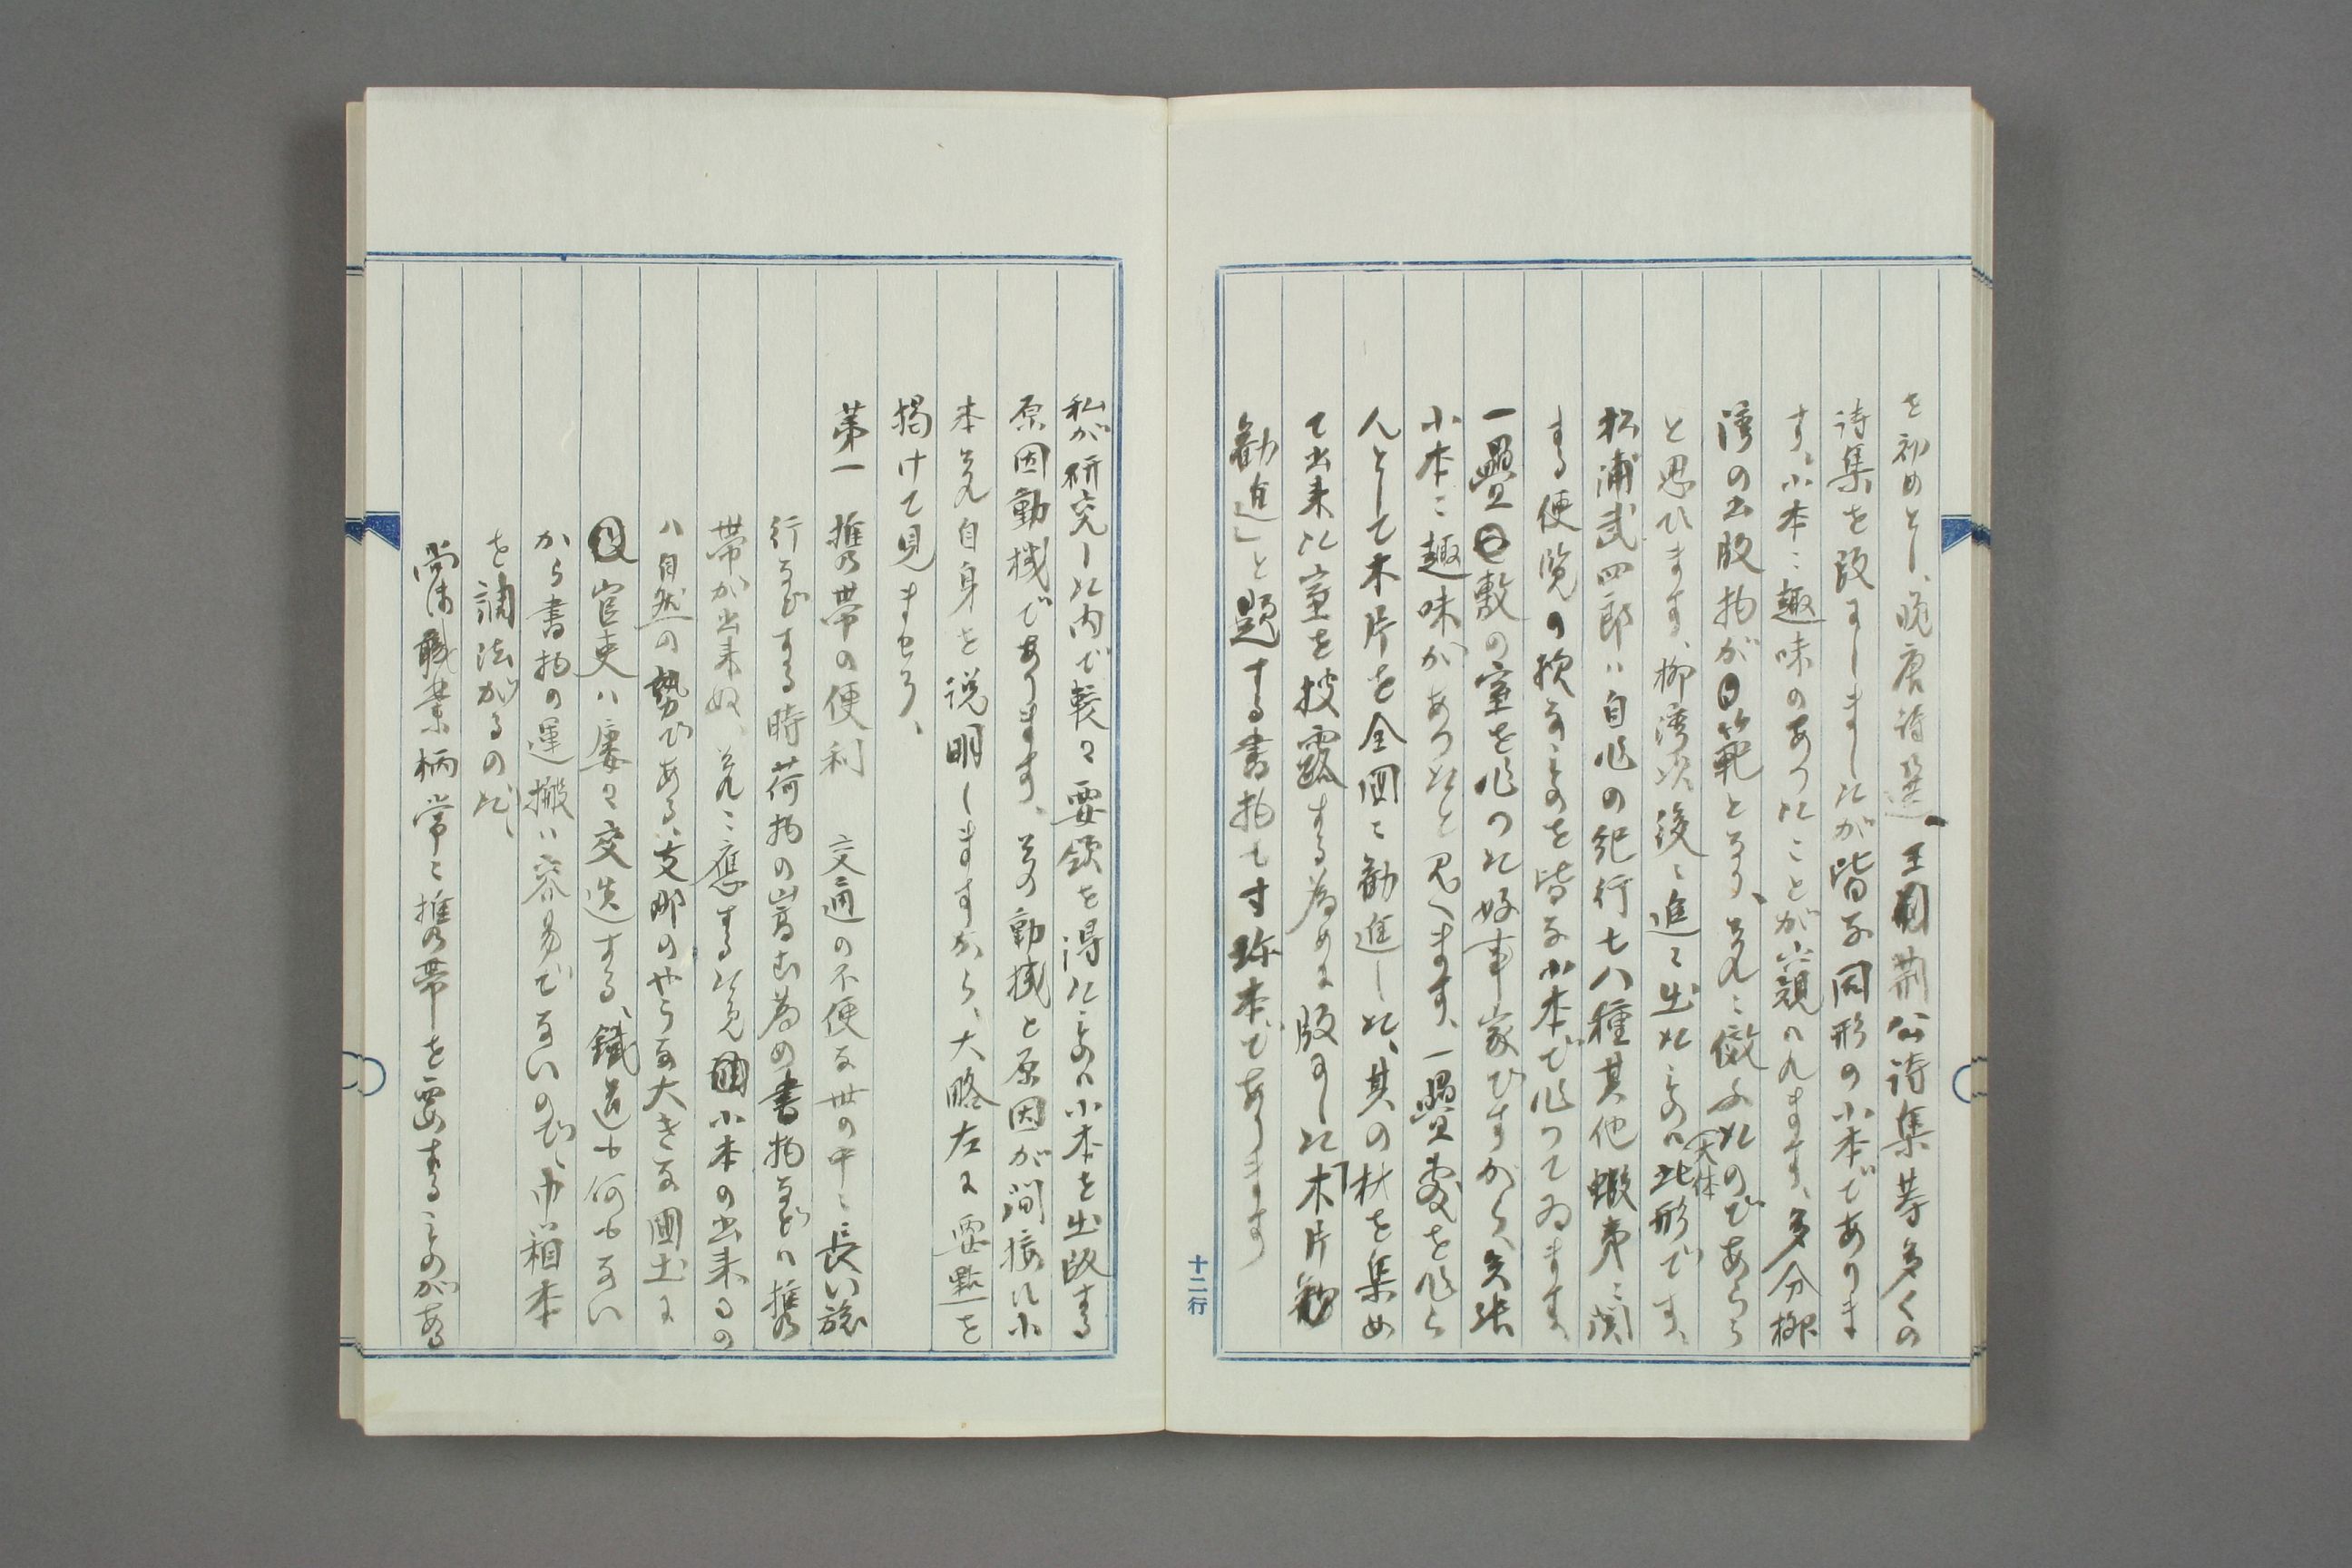 を初めとし、晩唐詩選、王荊公詩集等多くの
詩集を改刻しましたが皆な同形の小本でありま
す、小本ニ趣味のあつたことが窺ハれます、多分柳
湾の出版物が範となり、夫れニ傚ふたのであらう
と思ひます、柳湾以後ニ進ミ出たものハ大体此形です、
松浦武四郎ハ自作の紀行七八種其他蝦夷ニ関
する便覧の類なものを皆な小本で作つてゐます、
一疊敷の室を作つた好事家ですから、矢張
小本ニ趣味があつたと見へます、一疊敷を作ら
んとして木片を全国ニ勧進した、其の材を集め
て出来た室を披露する為めに版にした「木片勧
勧進」と題する書物も寸珍本であります
十二行
私が研究した内で較々要領を得たものハ小本を出版する
原因動機であります、其の動機と原因が間接に小
本夫れ自身を説明しますから、大略左に要點を
掲けて見ませう、
第一 携帯の便利 交通の不便な世の中ニ長い旅
行などする時荷物の嵩む為め書物などハ携
帯が出来ぬ、夫れニ應する為め小本の出来るの
ハ自然の勢である、支那のやうな大きな國土に
官吏ハ屡々交迭する、鐵道も何もない
から書物の運搬ハ容易でないので、巾箱本
を調法がるのだ、
尚ほ職業柄常ニ携帯を要するものがある